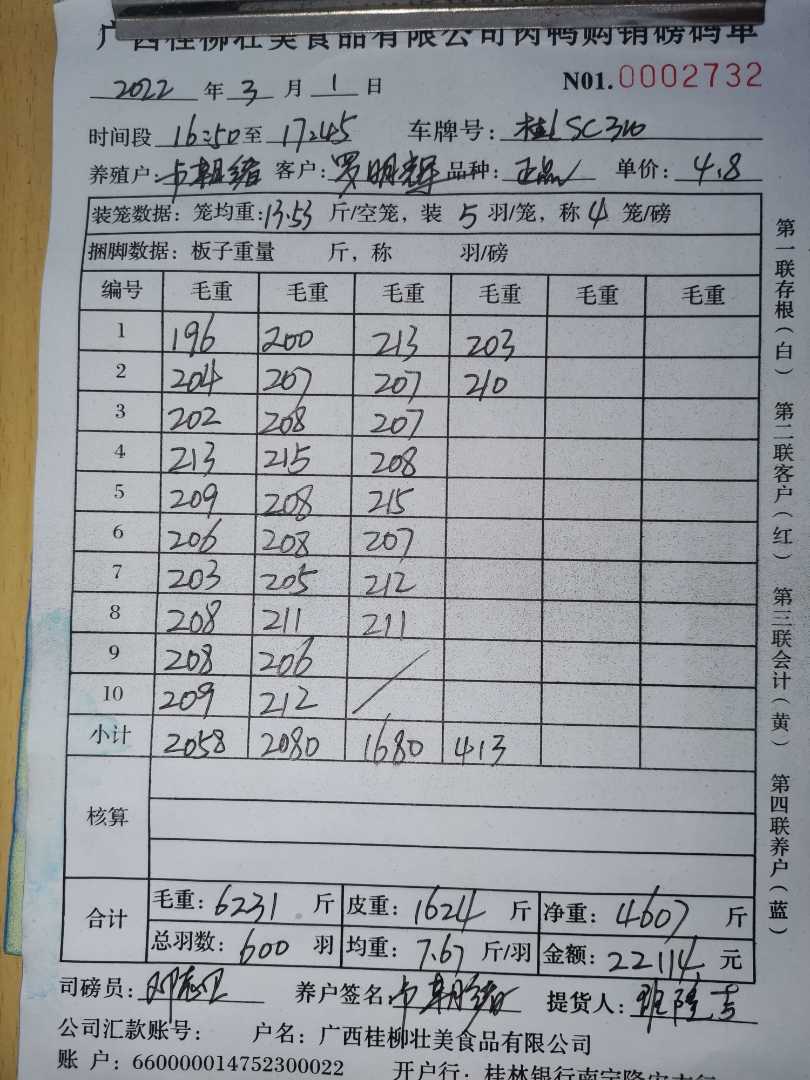 广西桂柳壮美食品有限公司肉鸭购销磅码单
2022 年 3 月 1 日 N01. 0002732
时间段 16:50 至 17:45 车牌号: 桂LSC310
养殖户: 卡朝绪 客户: 罗明辉 品种: 正品 单价: 4.8
装笼数据: 笼均重: 13.53 斤/空笼, 装 5 羽/笼, 称 4 笼/磅
捆脚数据: 板子重量 斤, 称 羽/磅
编号 毛重 毛重 毛重 毛重 毛重 毛重
1 196 200 213 203
2 204 207 207 210
3 202 208 207
4 213 215 208
5 209 208 215
6 206 208 207
7 203 205 212
8 208 211 211
9 208 206
10 209 212
小计 2058 2080 1680 413
核算
合计 毛重: 6231 斤 皮重: 1624 斤 净重: 4607 斤
总羽数: 600 羽 均重: 7.67 斤/羽 金额: 22114 元
司磅员: 养户签名: 卡朝绪 提货人:
公司汇款账号: 户名: 广西桂柳壮美食品有限公司
账 户: 660000014752300022 开户行: 桂林银行南宁隆安支行
第一联存根(白) 第二联客户(红) 第三联会计(黄) 第四联养户(蓝)